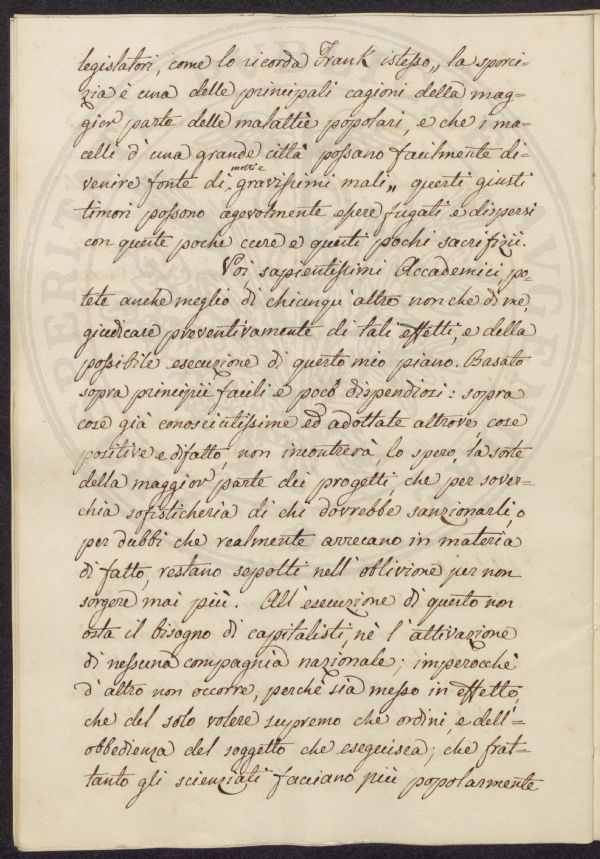 legislatori, come lo ricorda Frank istesso „ la sporci-
zia è una delle principali cagioni della mag-
gior parte delle malattie popolari, e che i ma-
celli d'una grande città possano facilmente di-
venire fonte di molti e gravissimi mali „ questi giusti
timori possono agevolmente essere fugati e dispersi
con queste poche cure e questi pochi sacrifizii.
Voi sapientissimi Accademici, po-
tete anche meglio di chiunqu'altro non che di me,
giudicare preventivamente di tali effetti, e della
possibile esecuzione di questo mio piano. Basato
sopra principii facili e poco dispendiosi: sopra
cose già conosciutissime ed adottate altrove, cose
positive e di fatto, non incontrerà, lo spero, la sorte
della maggior parte dei progetti, che per sover-
chia sofisticheria di chi dovrebbe sanzionarli, o
per dubbi che realmente arrecano in materia
di fatto, restano sepolti nell'oblivione per non
sorgere mai più. All'esecuzione di questo non
osta il bisogno di capitalisti, nè l'attivazione
di nessuna compagnia nazionale; imperocchè
d'altro non occorre, perchè sia messo in effetto,
che del solo volere supremo che ordini, e dell'-
obbedienza del soggetto che eseguisca; che frat-
tanto gli scienziati facciano più popolarmente